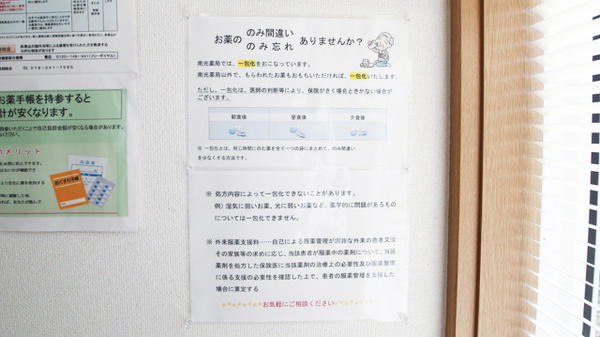 お薬手帳を持参すると
計が安くなります。
メリット
お薬の のみ間違い のみ忘れ ありませんか？
南光薬局では、一包化をおこなっています。
南光薬局以外で、もらわれたお薬もおもちいただければ、一包化いたします。
ただし、一包化は、医師の判断等により、保険がきく場合ときかない場合が
ございます。
朝食後 昼食後 夕食後
※ 一包化とは、同じ時間にのむ薬を全て一つの袋にまとめて、のみ間違い
を少なくする方法です。
※ 処方内容によって一包化できないことがあります。
例）湿気に弱いお薬、光に弱いお薬など、薬学的に問題があるもの
については一包化できません。
※ 外来服薬支援料……自己による服薬管理が困難な外来の患者又は
その家族等の求めに応じ、当該患者が服薬中の薬剤について、当該
薬剤を処方した保険医に当該薬剤の治療上の必要性及び服薬管理
に係る支援の必要性を確認した上で、患者の服薬管理を支援した
場合に算定する
お気軽にご相談ください